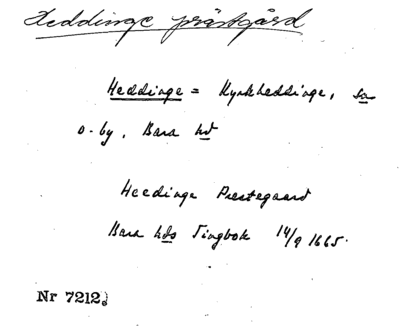 Heddinge prästgård
Heddinge = Kyrkheddinge, sn
o. by, Bara hd
Heedinge Prestegaard
Bara hds Tingbok 14/9 1665.
Nr 7212.